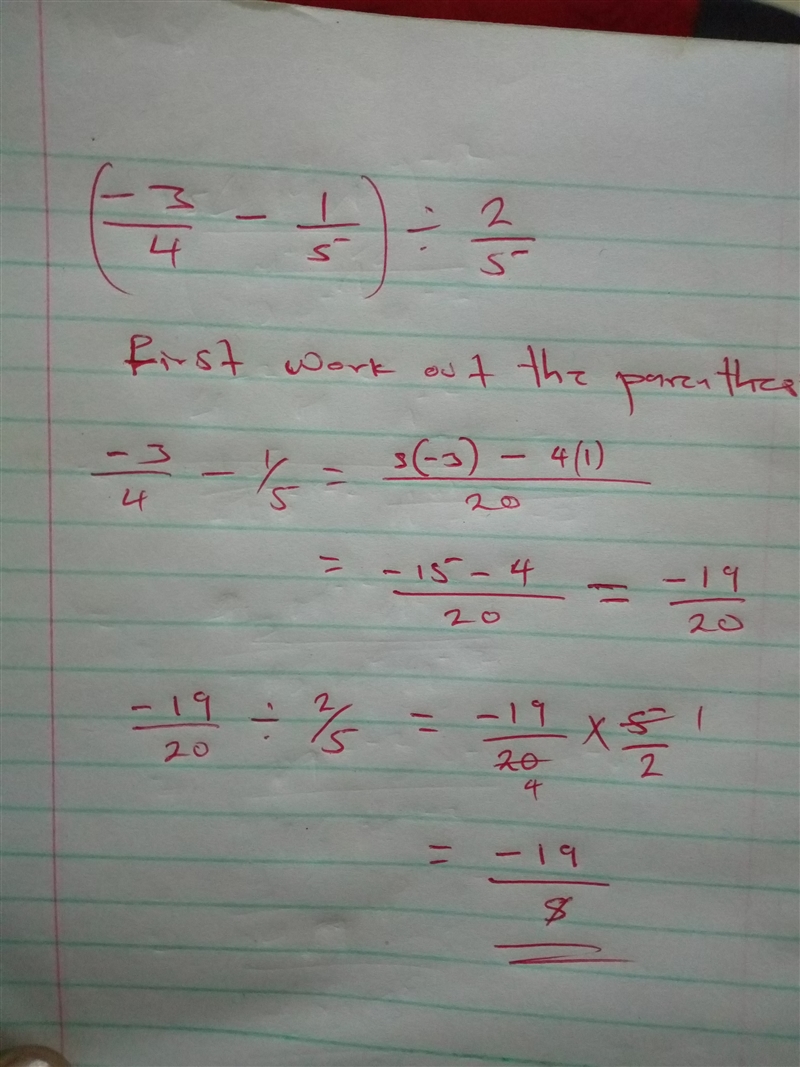 (-3/4 - 1/5) ÷ 2/5
First work out the parenthes
-3/4 - 1/5 = 3(-3) - 4(1)/20
= -15 - 4/20 = -19/20
-19/20 ÷ 2/5 = -19/20 4 × 5/2 1
= -19/8